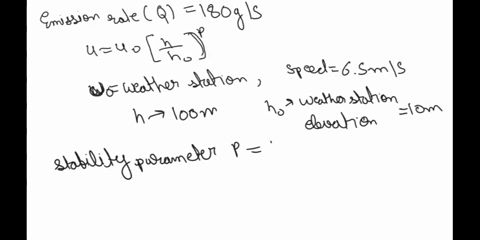 Emission rate (Q) = 180g/s
u = u₀ [h/h₀]^p
u₀ = weather station, speed = 6.5m/s
h → 100m
h₀ → weather station elevation = 10m
stability parameter P =